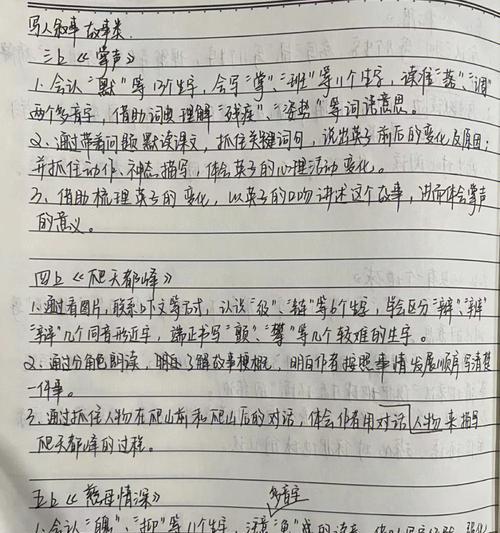 写人叙事 故事类
三上《掌声》
1. 会认"默"等13个生字，会写"掌"、"班"等11个生字，读准"落"、"调"
两个多音字，借助词典理解"残疾"、"姿势"等词语意思。
2. 通过带着问题默读课文，抓住关键词句，说出英子前后的变化及原因；
并抓住动作、神态描写，体会英子的心理活动变化。
3. 借助梳理英子的变化，以英子的口吻讲述这个故事，进而体会掌声
的意义。
四上《爬天都峰》
1. 通过看图片，联系上下文等方式，认识"级"、"链"等6个生字，学会区分"辨"、"辫"、
"辩"几个同音形近字，端正书写"颤"、"攀"等几个较难的生字。
2. 通过分角色朗读，明白了解故事梗概，明白作者按照事情发展顺序写清楚
一件事。
3. 通过抓住人物在爬山前和爬山后的对话，体会作者用对话人物来描写
爬天都峰的过程。
五上《慈母情深》
多音字
1. 会认"魄"、"抑"等11个生字，注意"龟"